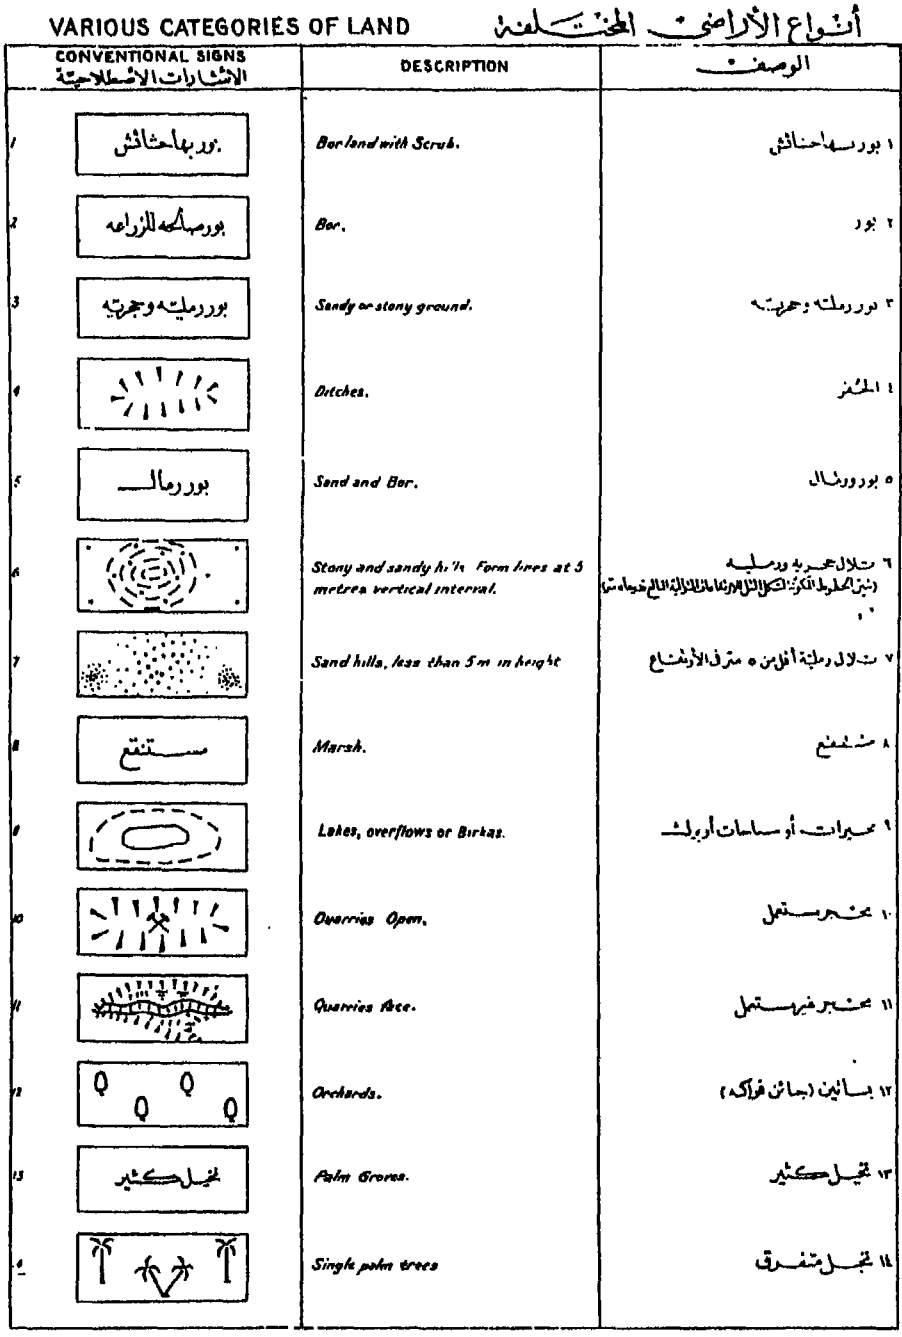 VARIOUS CATEGORIES OF LAND أنواع الأراضى المختلفة
CONVENTIONAL SIGNS
الاشارات الاصطلاحية
DESCRIPTION
الوصف
1 بور بها حشائش Bor land with Scrub. ١ بور بها حشائش
2 بور صالحه للزراعه Bor. ٢ بور
3 بور رمليه وحجريه Sandy or stony ground. ٣ بور رمليه وحجريه
4 Ditches. ٤ الحفر
5 بور رمال Sand and Bor. ٥ بور ورمال
6 Stony and sandy hills Form lines at 5 ٦ تلال حجريه ورمليه
metres vertical interval.
7 Sand hills, less than 5m in height ٧ تلال رملية أقل من ٥ متر فى الأرتفاع
8 مستنقع Marsh. ٨ مستنقع
9 Lakes, overflows or Birkas. ٩ بحيرات أو سياحات أو برك
10 Quarries Open. ١٠ محجر مستعمل
11 Quarries face. ١١ محجر غير مستعمل
12 Orchards. ١٢ بساتين (جنائن فواكه)
13 نخيل كثير Palm Groves. ١٣ نخيل كثير
Single palm trees ١٤ نخيل متفرق